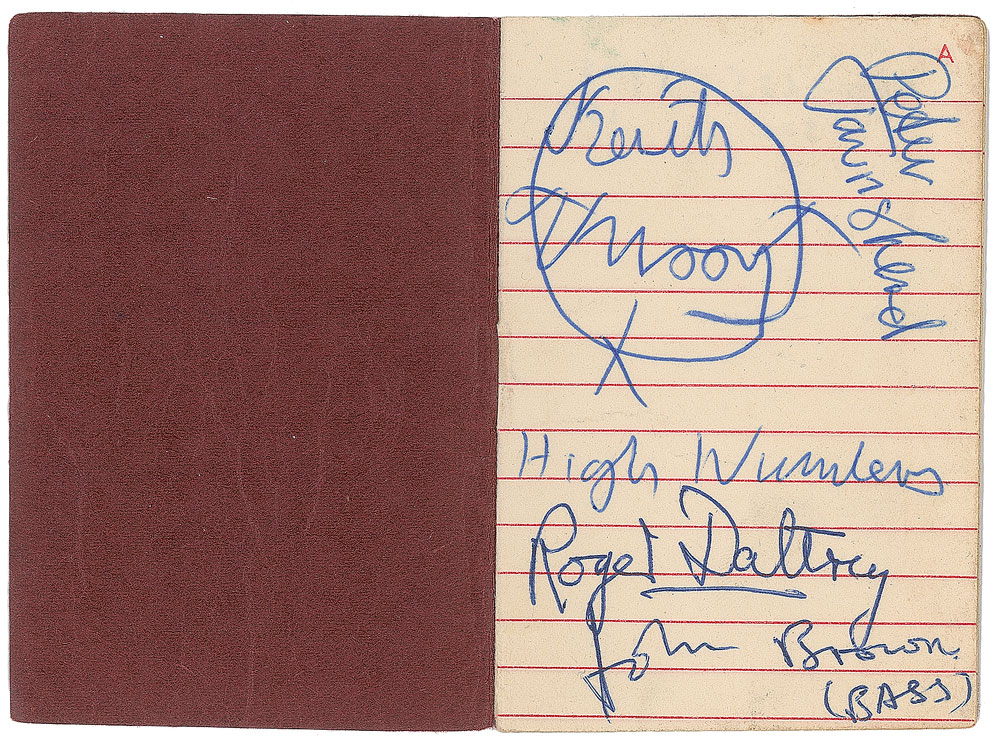 A
Keith
Moon
Peter
Townshend
High Numbers
Roger Daltrey
John Brown
(BASS)